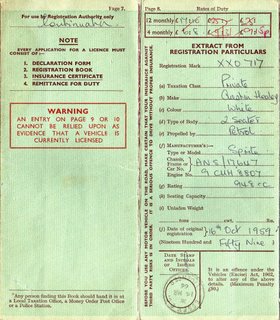 Page 7.
For use by Registration Authority only
Continuation
NOTE
EVERY APPLICATION FOR A LICENCE MUST
CONSIST OF:—
1. DECLARATION FORM
2. REGISTRATION BOOK
3. INSURANCE CERTIFICATE
4. REMITTANCE FOR DUTY
WARNING
AN ENTRY ON PAGE 9 OR 10
CANNOT BE RELIED UPON AS
EVIDENCE THAT A VEHICLE IS
CURRENTLY LICENSED
Any person finding this Book should hand it in at
a Local Taxation Office, a Money Order Post Office
or a Police Station.
BEFORE YOU USE ANY MOTOR VEHICLE ON THE ROAD YOU MUST INSURE AGAINST
THIRD PARTY RISKS. IT IS A SERIOUS OFFENCE TO DRIVE WITHOUT PROPER INSURANCE.
Page 8.
Rates of Duty
12 monthly
4 monthly
EXTRACT FROM
REGISTRATION PARTICULARS
Registration Mark XXO 717
(a) Taxation Class Private
(b) Make Austin Healey
(c) Colour White
(d) Type of Body 2 Seater
(e) Propelled by Petrol
(f) Type or Model Sprite
Chassis, Frame or Car No. AN5/17647
Engine No. 9 CHH 8807
(g) Rating 948 cc.
(h) Seating Capacity
(i) Unladen Weight
tons cwt. lbs.
(j) Date of original registration 16th Oct 1959
(Nineteen Hundred and Fifty Nine)
DATE STAMP
AND INITIALS
OF ISSUING
OFFICER
It is an offence under the
Vehicles (Excise) Act, 1962,
to alter any of the above
details. (Maximum Penalty
£50.)